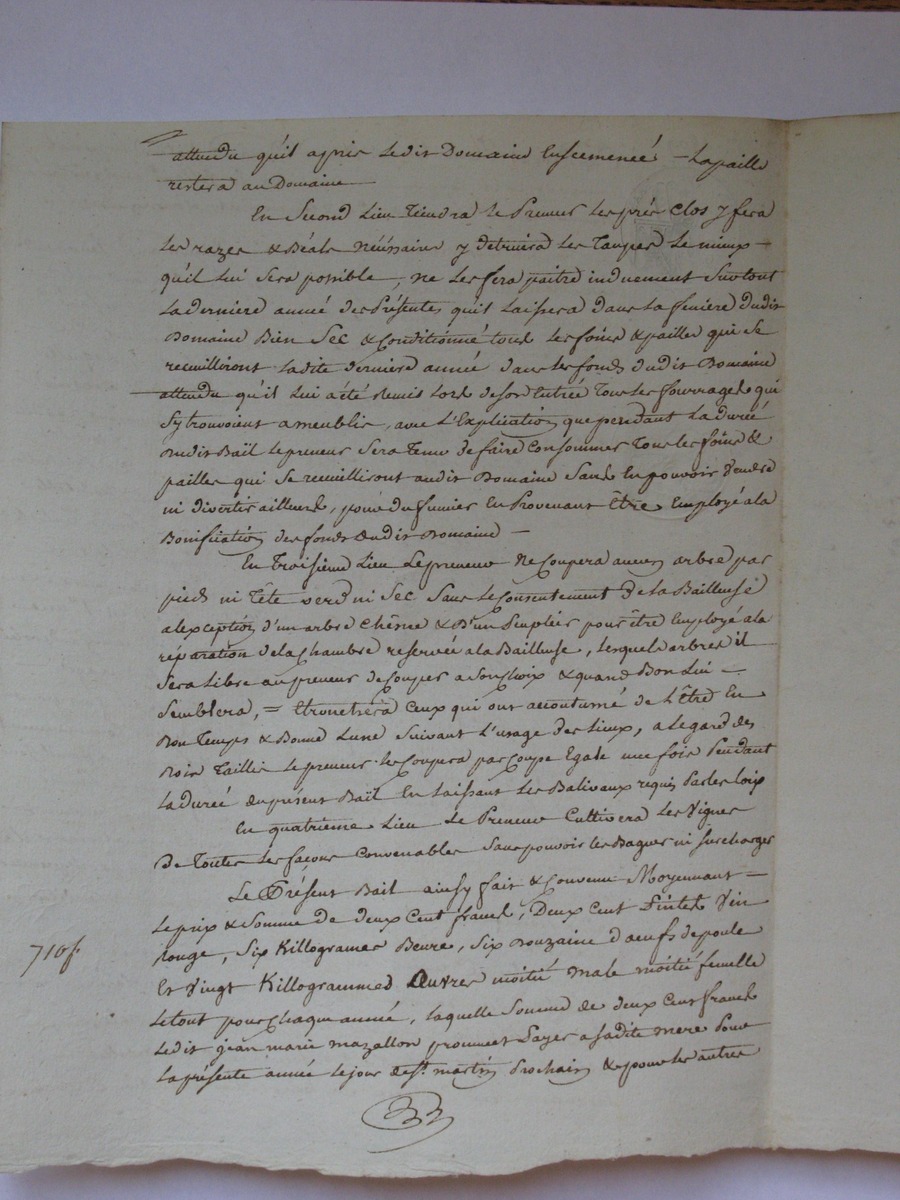 attendu qu'il apris ledit Domaine Ensemencé - la paille
restera au Domaine
En Second Lieu Tiendra le Preneur les prés clos y fera
les razes & Béals Nécéssaires y détruira les Taupes Le mieux
qu'il Lui sera possible, ne les fera paître induement surtout
la derniere année des Présentes qu'il Laissera dans la feniere dudit
Domaine Bien sec & Conditionné tous les foins & pailles qui se
recueilliront ladite derniere année dans les fonds dudit Domaine
attendu qu'il lui a été Remis Lors de son Entrée Tous les fourrages qui
s'y trouvoient ameublis, avec L'Explication que pendant La durée
dudit Bail le preneur sera Tenu de faire Consommer Tous les foins &
pailles qui se recueilliront audit Domaine Sans En pouvoir Vendre
ni divertir ailleurs, pour du fumier En Provenant Être Employé a la
Bonification des fonds dudit Domaine
En Troisieme Lieu Le preneur Ne Coupera aucun arbre par
pied ni Tête verd ni Sec Sans le Consentement de la Bailleuse
a l'exception d'un arbre Chêne & D'un Peuplier pour être Employé a la
réparation de la Chambre reservée a la Bailleuse, Lesquels arbres il
sera Libre au preneur de Couper a son Choix & quand Bon Lui
Semblera, = Etronchera Ceux qui ont accoutumé de L'être En
Bon Temps & Bonne Lune Suivant L'usage des Lieux, a Legard des
Bois Taillis le preneur les Coupera par Coupe Egale une fois Pendant
la durée du présent Bail En laissant les Balivaux requis Par les loix
En quatrieme Lieu Le Preneur Cultivera Les Vignes
De Toutes les façons Convenables Sans pouvoir les Baguer ni surcharger
Le Présent Bail ainsy fait & Convenu Moyennant
Le prix & Somme de deux Cent francs, Deux Cent Pintes Vin
710f.
rouge, Six Killogrames Beure, Six Douzaine d'aeufs de poule
Et Vingt Killogrammes Œuvres moitié male moitié femelle
Le tout pour Chaque année, laquelle Somme de deux Cent francs
Ledit jean marie mazallon promet Payer a sadite mere Pour
La présente année le jour de St. martin Prochain & pour les autres